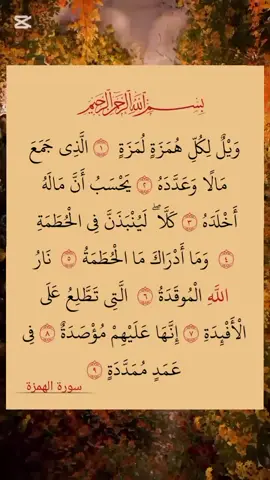 بِسْمِ اللَّهِ الرَّحْمَٰنِ الرَّحِيمِ
وَيْلٌ لِكُلِّ هُمَزَةٍ لُمَزَةٍ ١ الَّذِى جَمَعَ
مَالًا وَعَدَّدَهُ ٢ يَحْسَبُ أَنَّ مَالَهُ
أَخْلَدَهُ ٣ كَلَّا ۖ لَيُنْبَذَنَّ فِى الْحُطَمَةِ
٤ وَمَا أَدْرَاكَ مَا الْحُطَمَةُ ٥ نَارُ
اللَّهِ الْمُوقَدَةُ ٦ الَّتِى تَطَّلِعُ عَلَى
الْأَفْئِدَةِ ٧ إِنَّهَا عَلَيْهِمْ مُؤْصَدَةٌ ٨ فِى
عَمَدٍ مُمَدَّدَةٍ ٩
سورة الهمزة